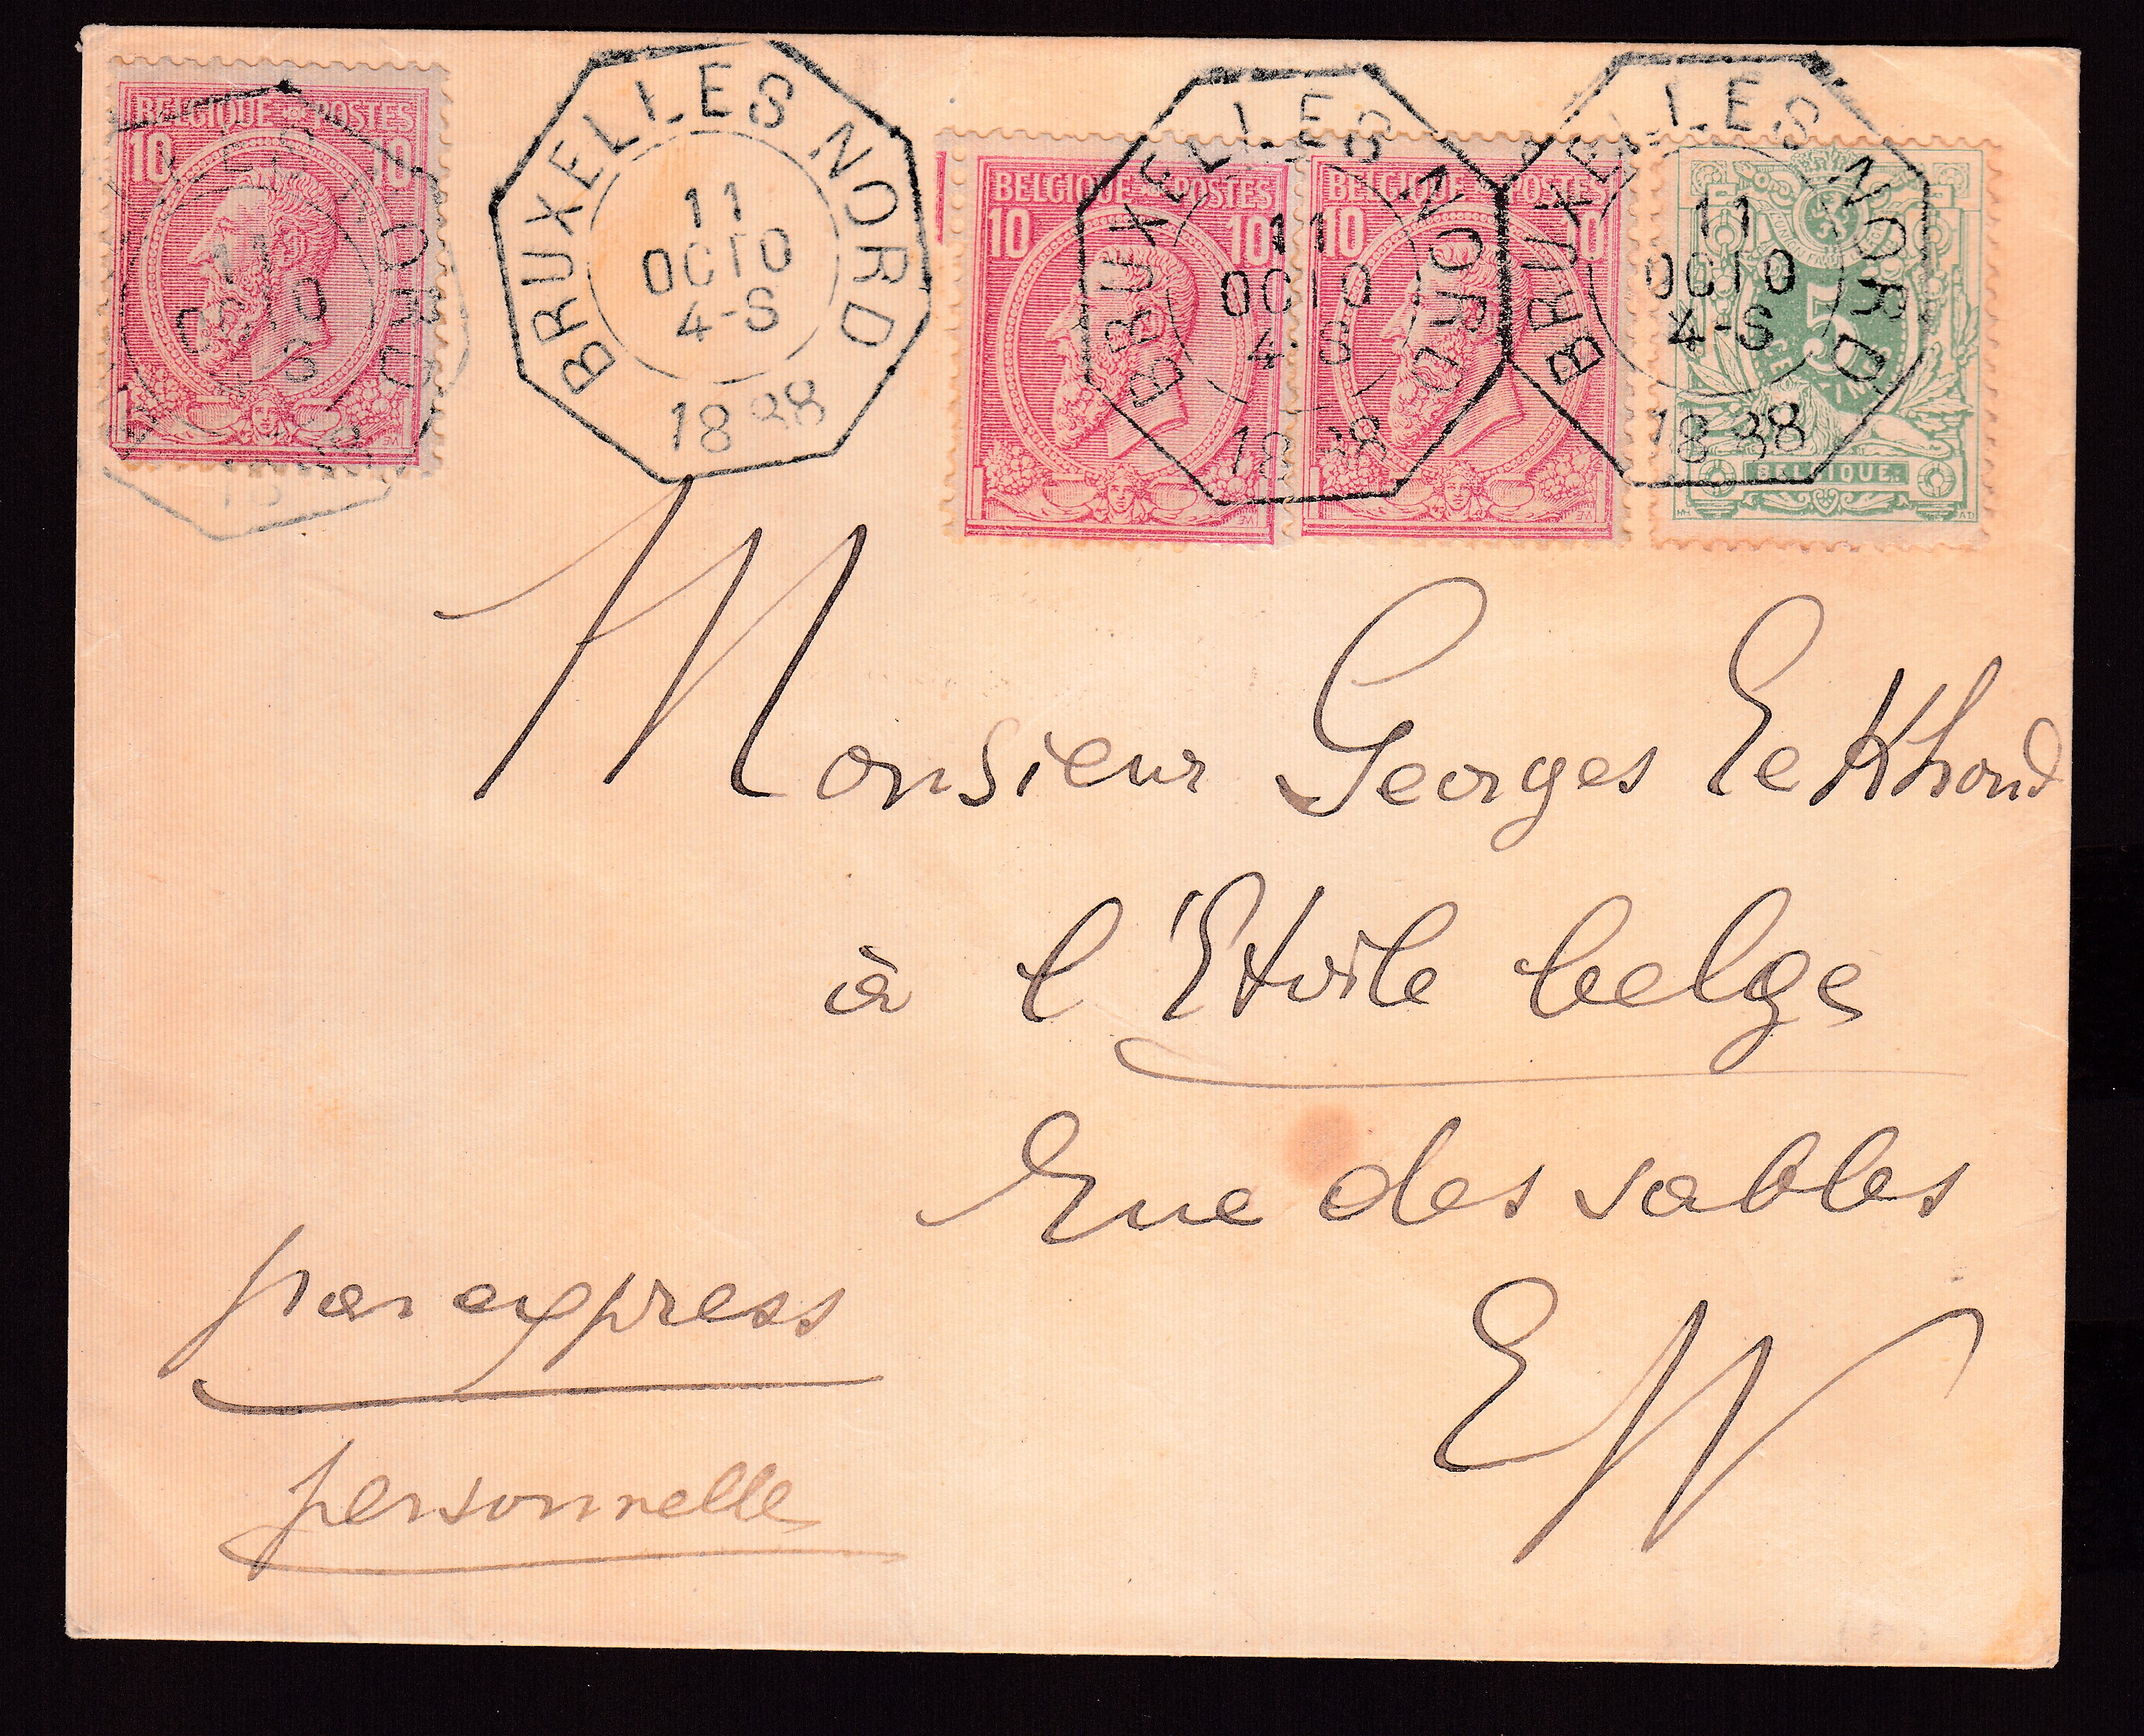 BELGIQUE POSTES
10 10
BRUXELLES NORD
11
OCTO
4-S
1888
BELGIQUE POSTES
10 10
BELGIQUE POSTES
10 10
BRUXELLES NORD
11
OCTO
4-S
1888
BRUXELLES NORD
11
OCTO
4-S
1888
5
BELGIQUE.
Monsieur Georges Eekhoud
à l'Etoile belge
Rue des sables
EV
par express
personnelle